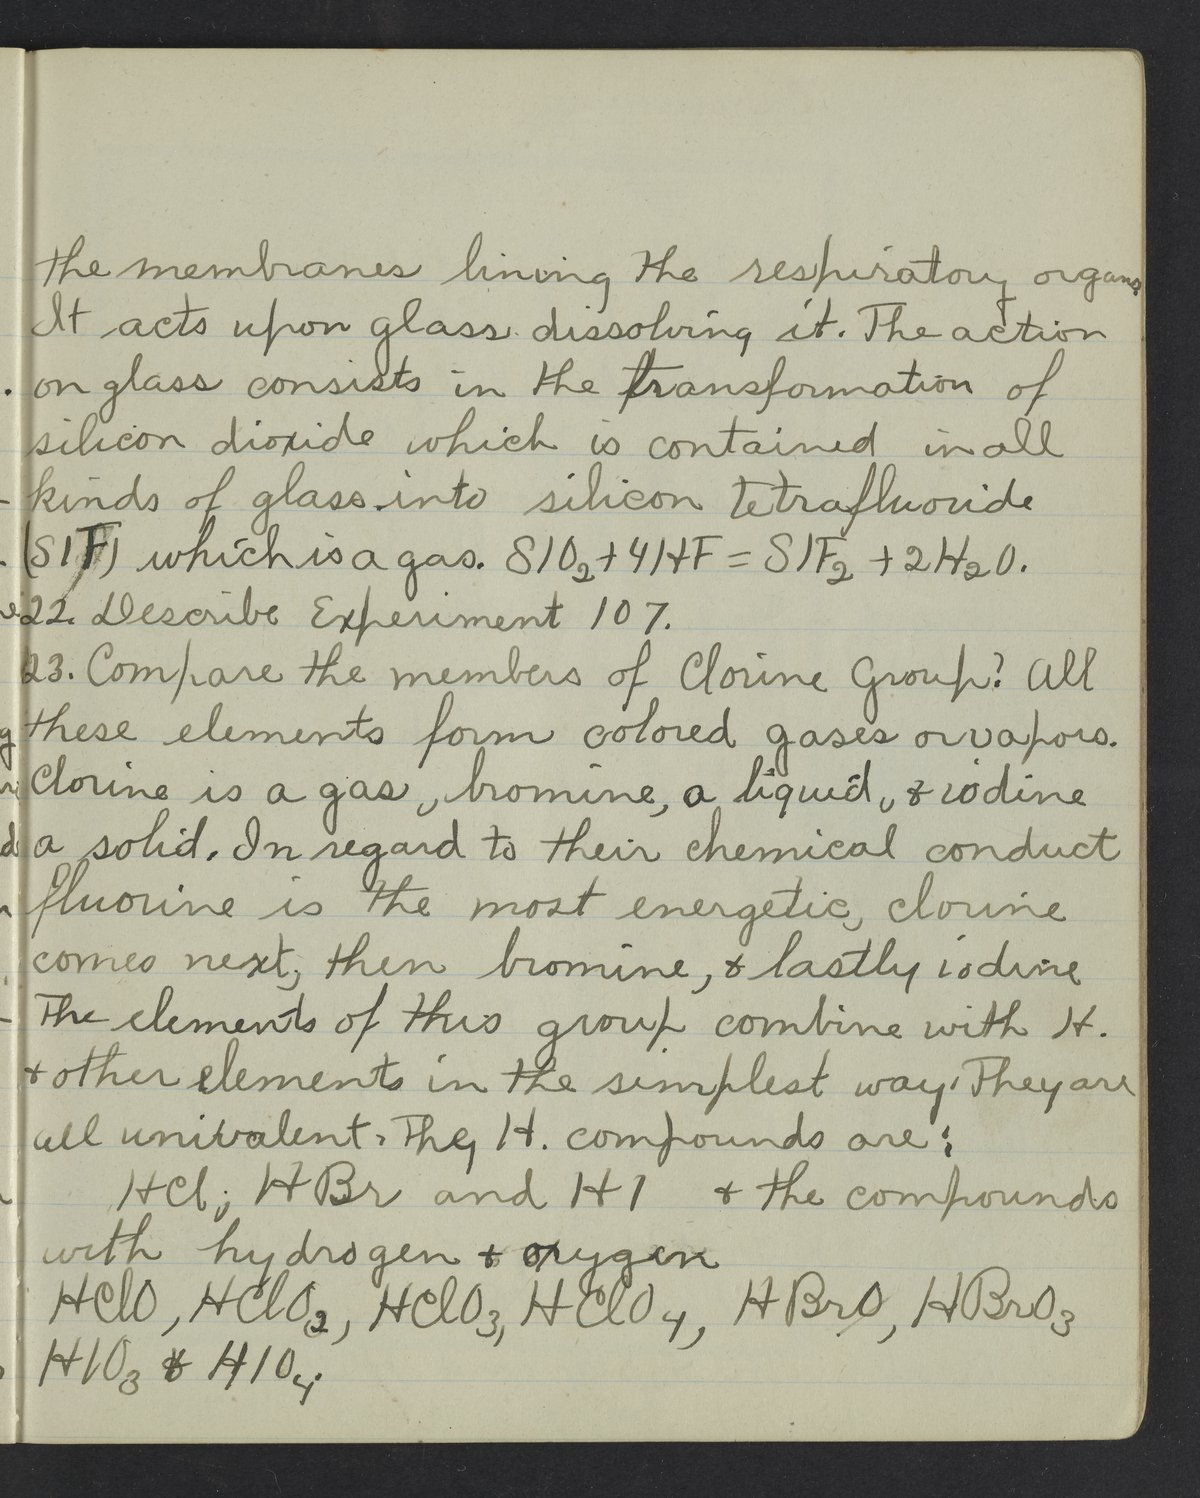 the membranes lining the respiratory organs.
It acts upon glass dissolving it. The action
on glass consists in the transformation of
silicon dioxide which is contained in all
kinds of glass into silicon tetrafluoride
(SIF) which is a gas. SIO₂ + 4HF = SIF₂ + 2H₂O.
22. Describe Experiment 107.
23. Compare the members of Clorine Group? All
these elements form colored gases or vapors.
Clorine is a gas, bromine, a liquid, & iodine
a solid. In regard to their chemical conduct
fluorine is the most energetic, clorine
comes next, then bromine, & lastly iodine
The elements of this group combine with H.
& other elements in the simplest way. They are
all univalent. They H. compounds are:
HCl; HBr and HI & the compounds
with hydrogen & oxygen
HClO, HClO₂, HClO₃, HClO₄, HBrO, HBrO₃
HIO₃ & HIO₄.